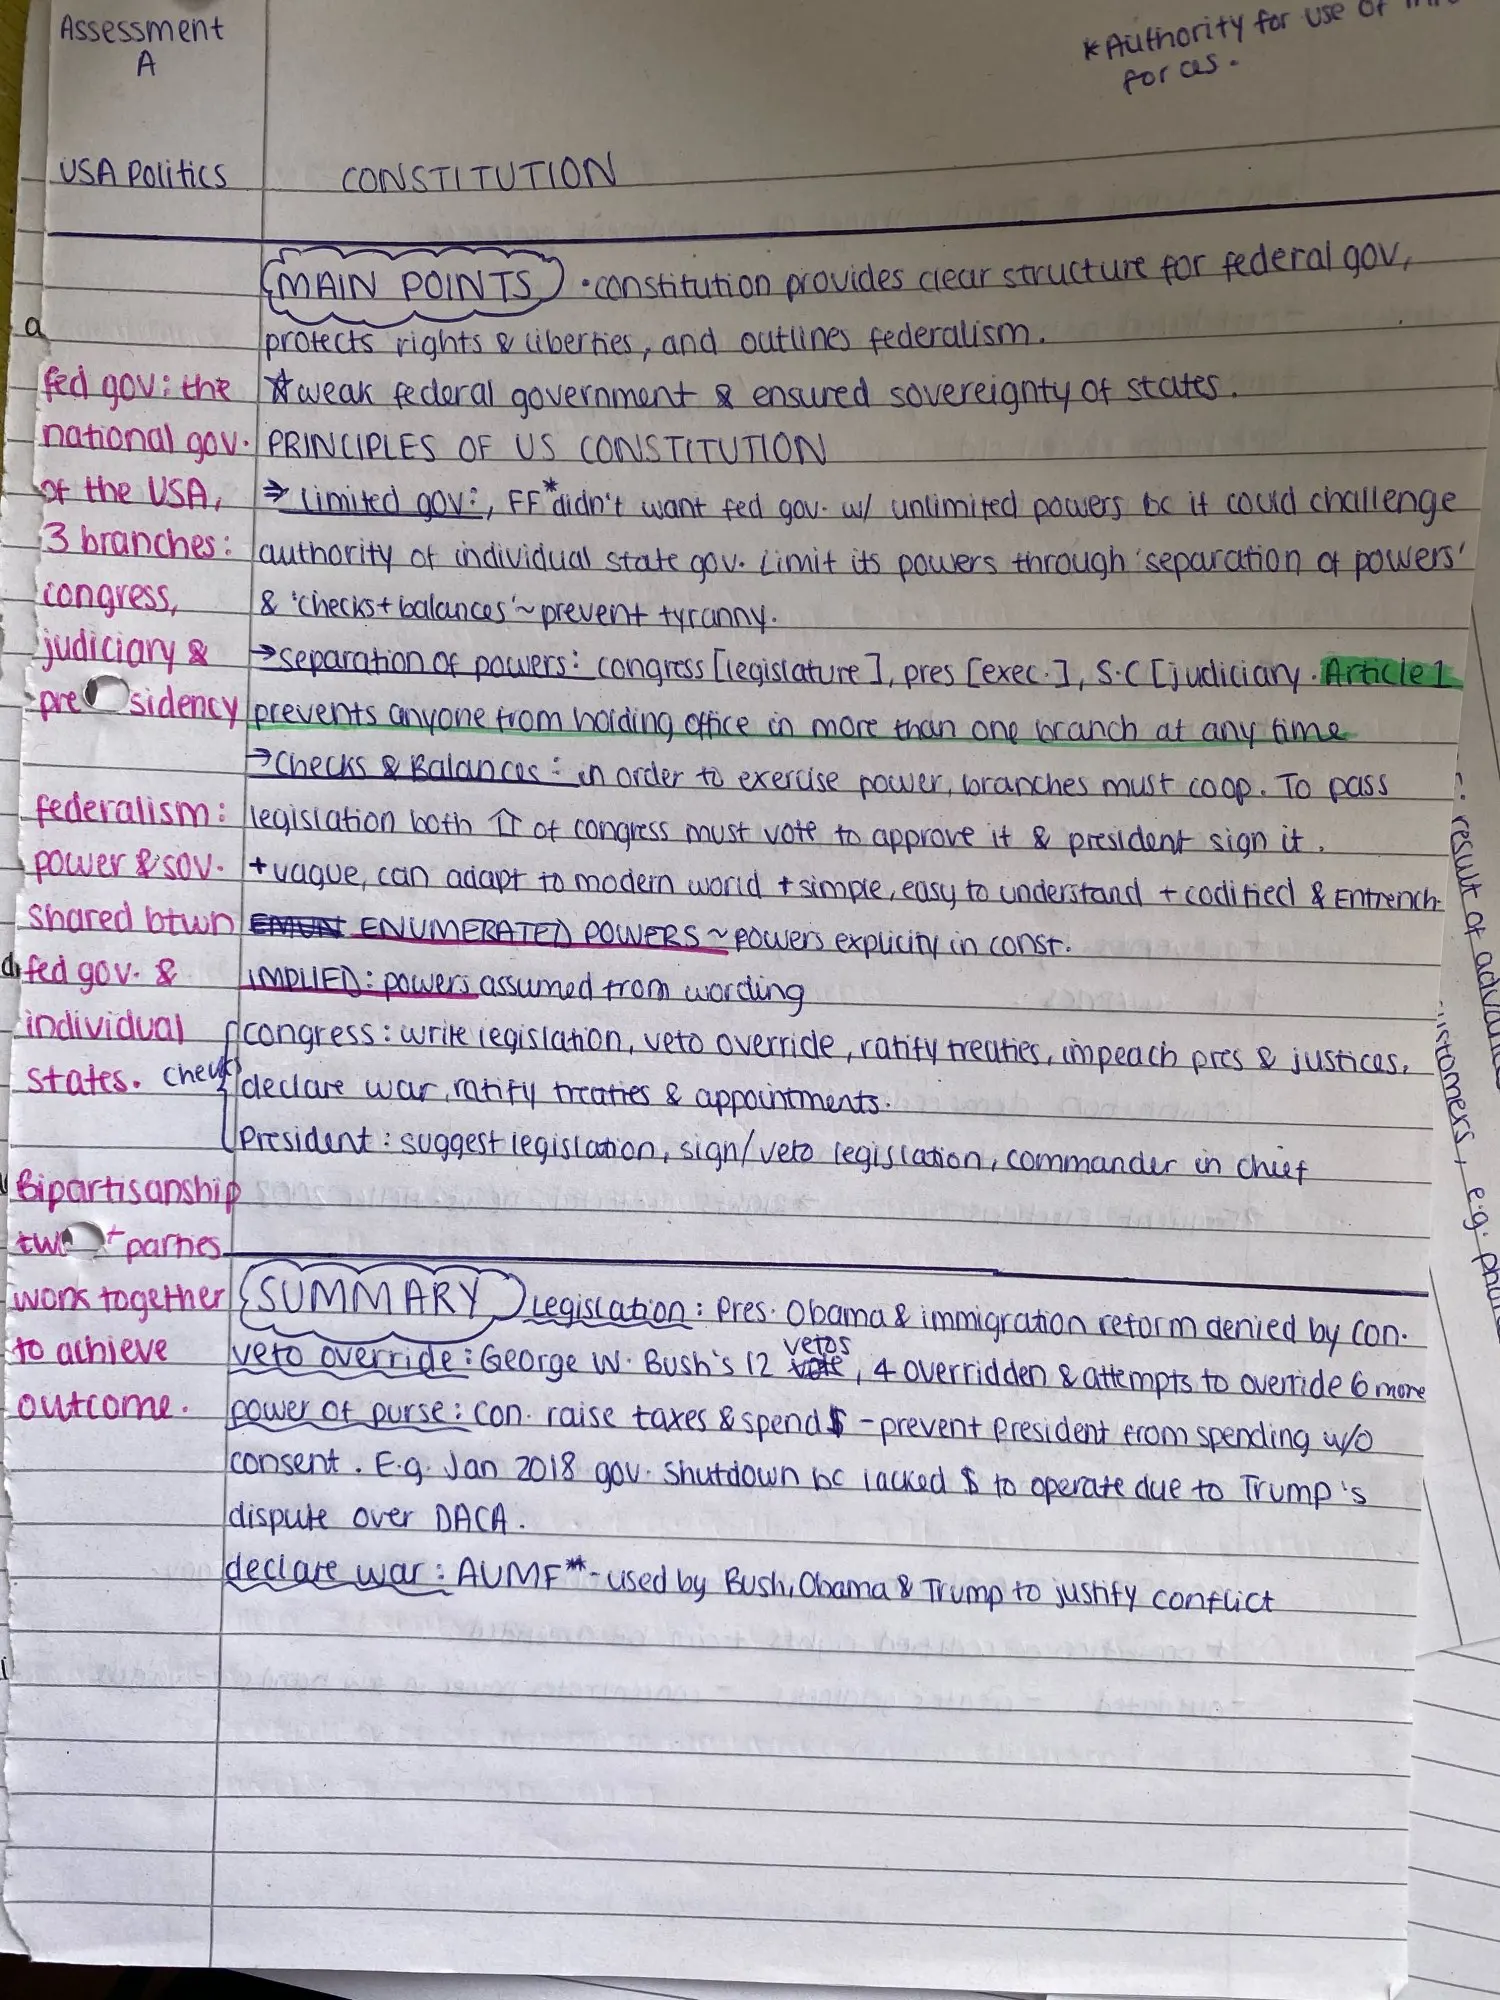 Assessment
A
*Authority for use of
forces.
USA Politics
CONSTITUTION
MAIN POINTS • constitution provides clear structure for federal gov,
protects rights & liberties, and outlines federalism.
☆ weak federal government & ensured sovereignty of states.
PRINCIPLES OF US CONSTITUTION
⇒ Limited gov:, FF* didn't want fed gov. w/ unlimited powers bc it could challenge
authority of individual state gov. Limit its powers through 'separation of powers'
& 'checks+balances' ~ prevent tyranny.
→ separation of powers: congress [legislature], pres [exec.], S.C [judiciary. Article 1
prevents anyone from holding office in more than one branch at any time
→ Checks & Balances: in order to exercise power, branches must coop. To pass
legislation both ⇈ of congress must vote to approve it & president sign it.
+vague, can adapt to modern world +simple, easy to understand +codified & Entrench-
ENUMERATED POWERS ~ powers explicity in const.
IMPLIED: powers assumed from wording
congress: write legislation, veto override, ratify treaties, impeach pres & justices,
declare war, ratify treaties & appointments.
President: suggest legislation, sign/veto legislation, commander in chief
a
fed gov: the
national gov.
of the USA,
3 branches:
congress,
judiciary &
presidency
federalism:
power & sov.
shared btwn
fed gov. &
individual
states.
check
Bipartisanship
parties
work together
to achieve
outcome.
SUMMARY Legislation: Pres. Obama & immigration reform denied by con.
veto override: George W. Bush's 12 vetos, 4 overridden & attempts to override 6 more
power of purse: con. raise taxes & spend $ - prevent president from spending w/o
consent. E.g. Jan 2018 gov. shutdown bc lacked $ to operate due to Trump's
dispute over DACA.
declare war: AUMF** - used by Bush, Obama & Trump to justify conflict
result of
e.g.